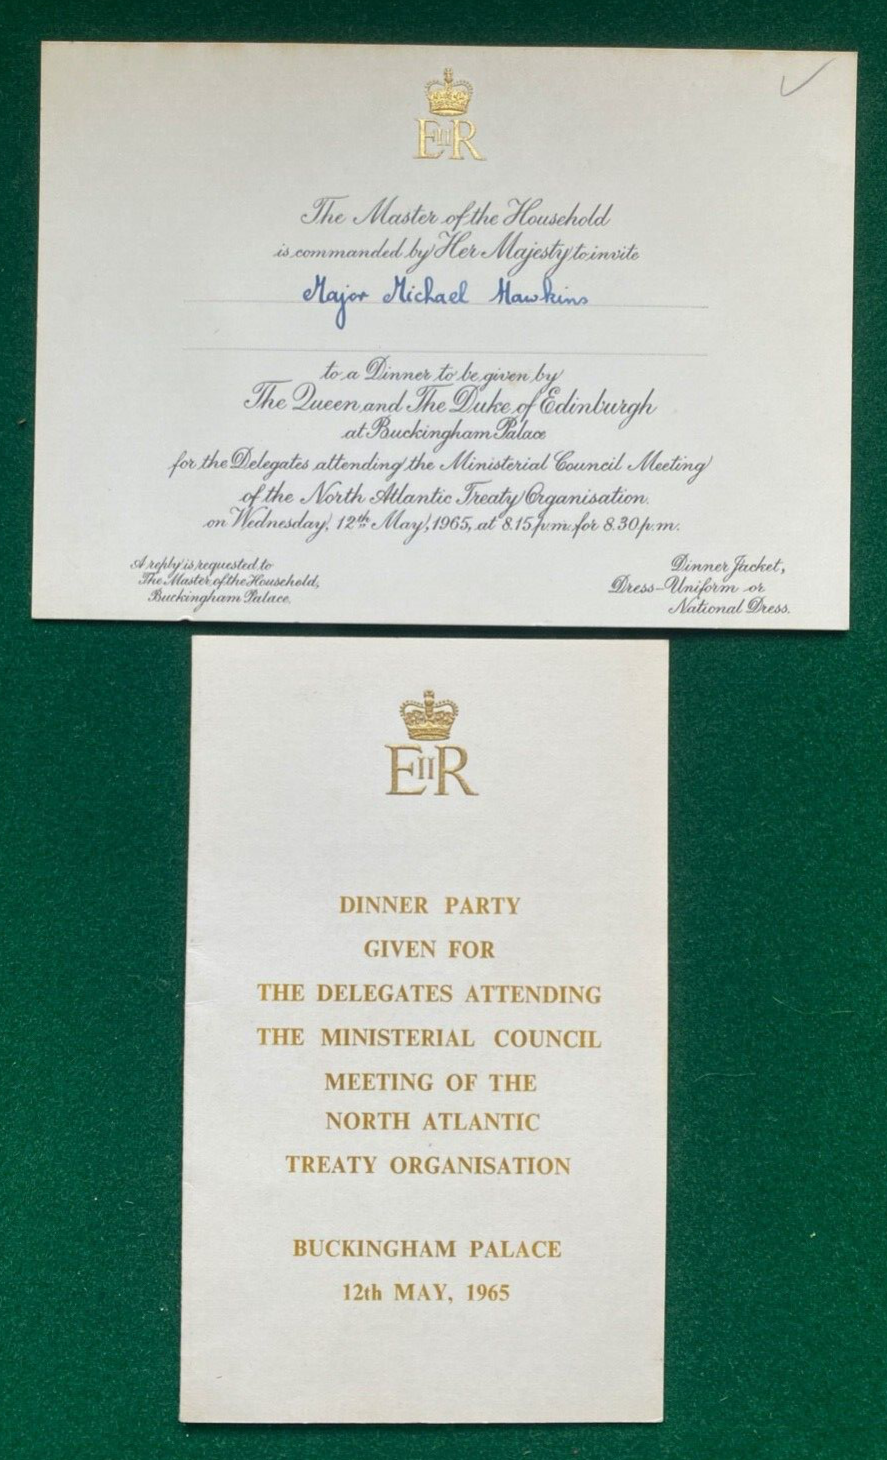 EIIR
The Master of the Household
is commanded by Her Majesty to invite
Major Michael Hawkins
to a Dinner to be given by
The Queen and The Duke of Edinburgh
at Buckingham Palace
for the Delegates attending the Ministerial Council Meeting
of the North Atlantic Treaty Organisation.
on Wednesday, 12th May, 1965, at 8.15 p.m. for 8.30 p.m.
A reply is requested to
The Master of the Household,
Buckingham Palace.
Dinner Jacket,
Dress-Uniform or
National Dress.
EIIR
DINNER PARTY
GIVEN FOR
THE DELEGATES ATTENDING
THE MINISTERIAL COUNCIL
MEETING OF THE
NORTH ATLANTIC
TREATY ORGANISATION
BUCKINGHAM PALACE
12th MAY, 1965